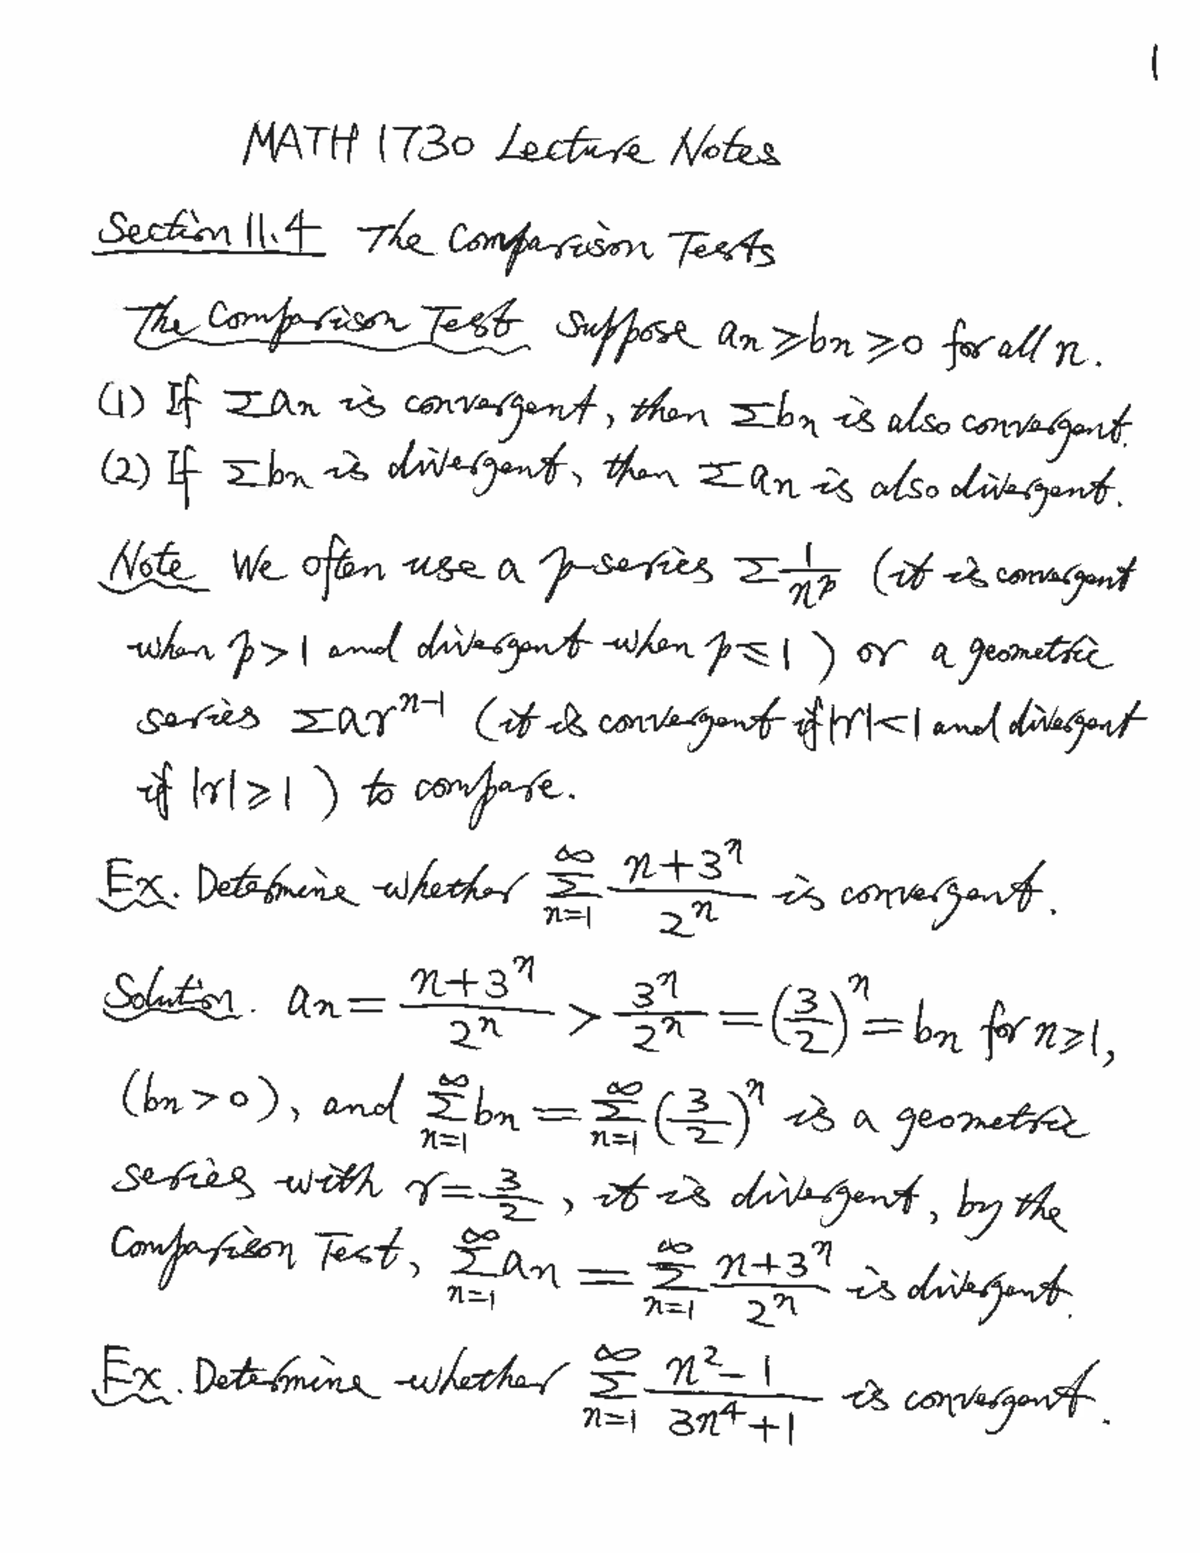 1
MATH 1730 Lecture Notes
Section 11.4 The Comparison Tests
The Comparison Test Suppose an ≥ bn ≥ 0 for all n.
(1) If Σan is convergent, then Σbn is also convergent.
(2) If Σbn is divergent, then Σan is also divergent.
Note We often use a p-series Σ 1/n^p (it is convergent
when p > 1 and divergent when p ≤ 1) or a geometric
series Σar^(n-1) (it is convergent if |r| < 1 and divergent
if |r| ≥ 1) to compare.
Ex. Determine whether ∞Σn=1 (n+3^n)/2^n is convergent.
Solution. an = (n+3^n)/2^n > 3^n/2^n = (3/2)^n = bn for n ≥ 1,
(bn > 0), and ∞Σn=1 bn = ∞Σn=1 (3/2)^n is a geometric
series with r = 3/2, it is divergent, by the
Comparison Test, ∞Σn=1 an = ∞Σn=1 (n+3^n)/2^n is divergent.
Ex. Determine whether ∞Σn=1 (n^2-1)/(3n^4+1) is convergent.